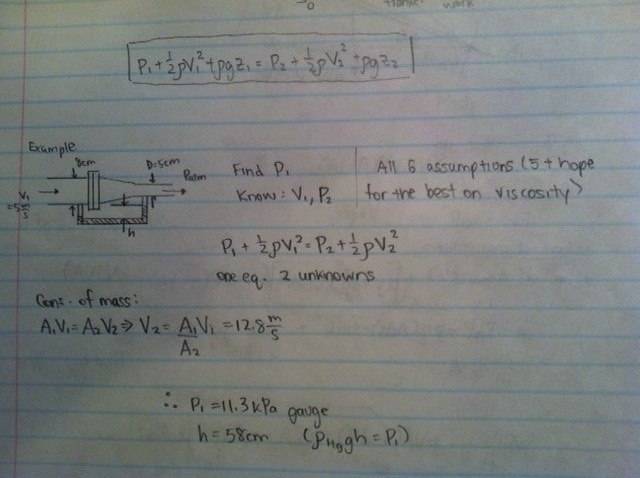 work
P₁+½ρV₁²+ρgz₁ = P₂+½ρV₂²+ρgz₂
Example
8cm
D=5cm
Patm
V₁
=5 m/s
h
Find P₁
Know: V₁, P₂
All 6 assumptions (5 + hope
for the best on viscosity)
P₁ + ½ρV₁² = P₂ + ½ρV₂²
one eq. 2 unknowns
Cons. of mass:
A₁V₁ = A₂V₂ ⇒ V₂ = A₁V₁/A₂ = 12.8 m/s
∴ P₁ = 11.3 kPa gauge
h = 58cm (ρHg gh = P₁)